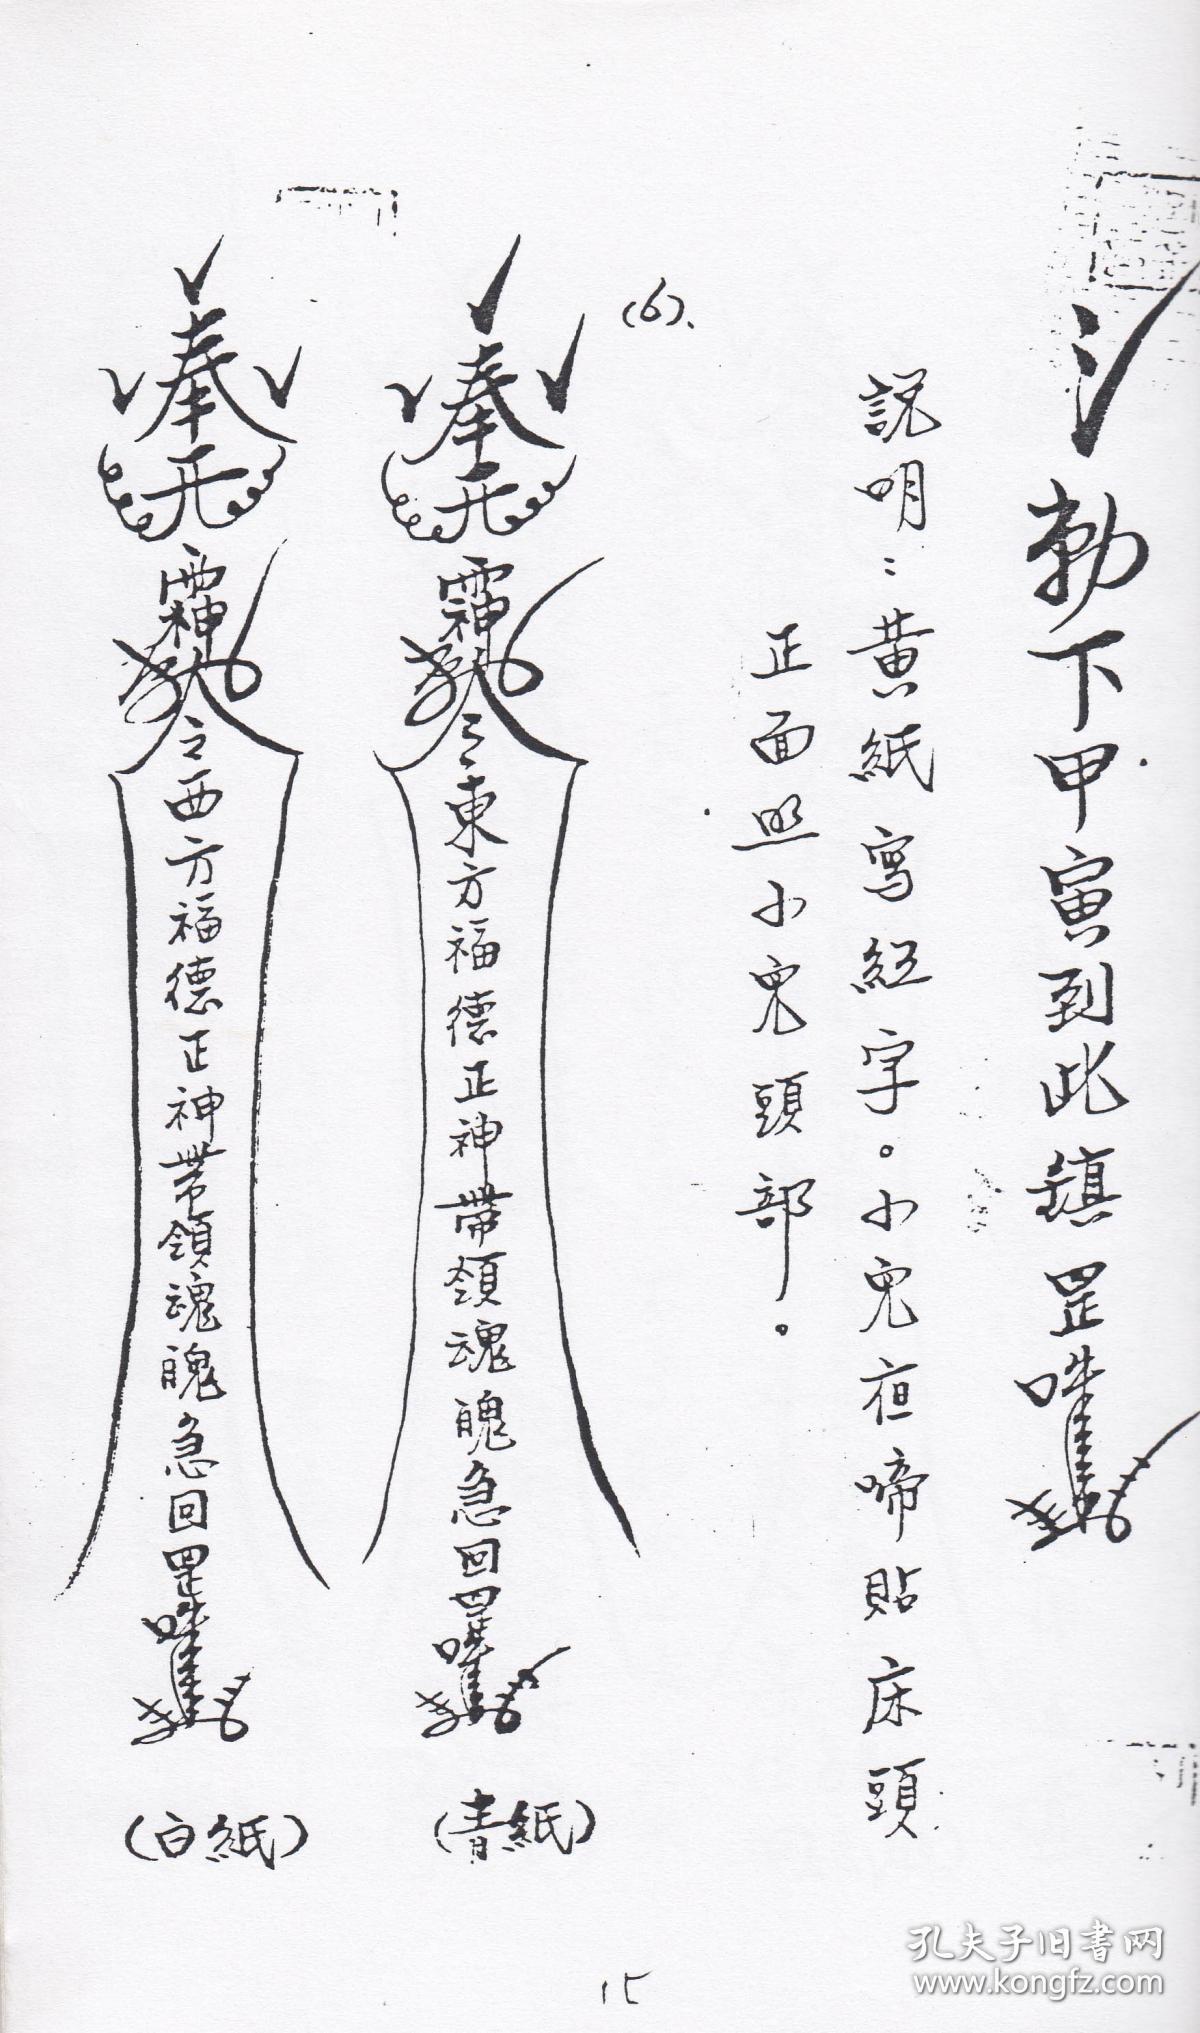 勅下甲寅到此鎮罡
說明：黃紙寫紅字。小兒夜啼貼床頭
正面照小兒頭部。
(6)、
奉
令東方福德正神帶領魂魄急回罡
(青紙)
奉
令西方福德正神帶領魂魄急回罡
(白紙)
15
孔夫子旧书网
www.kongfz.com